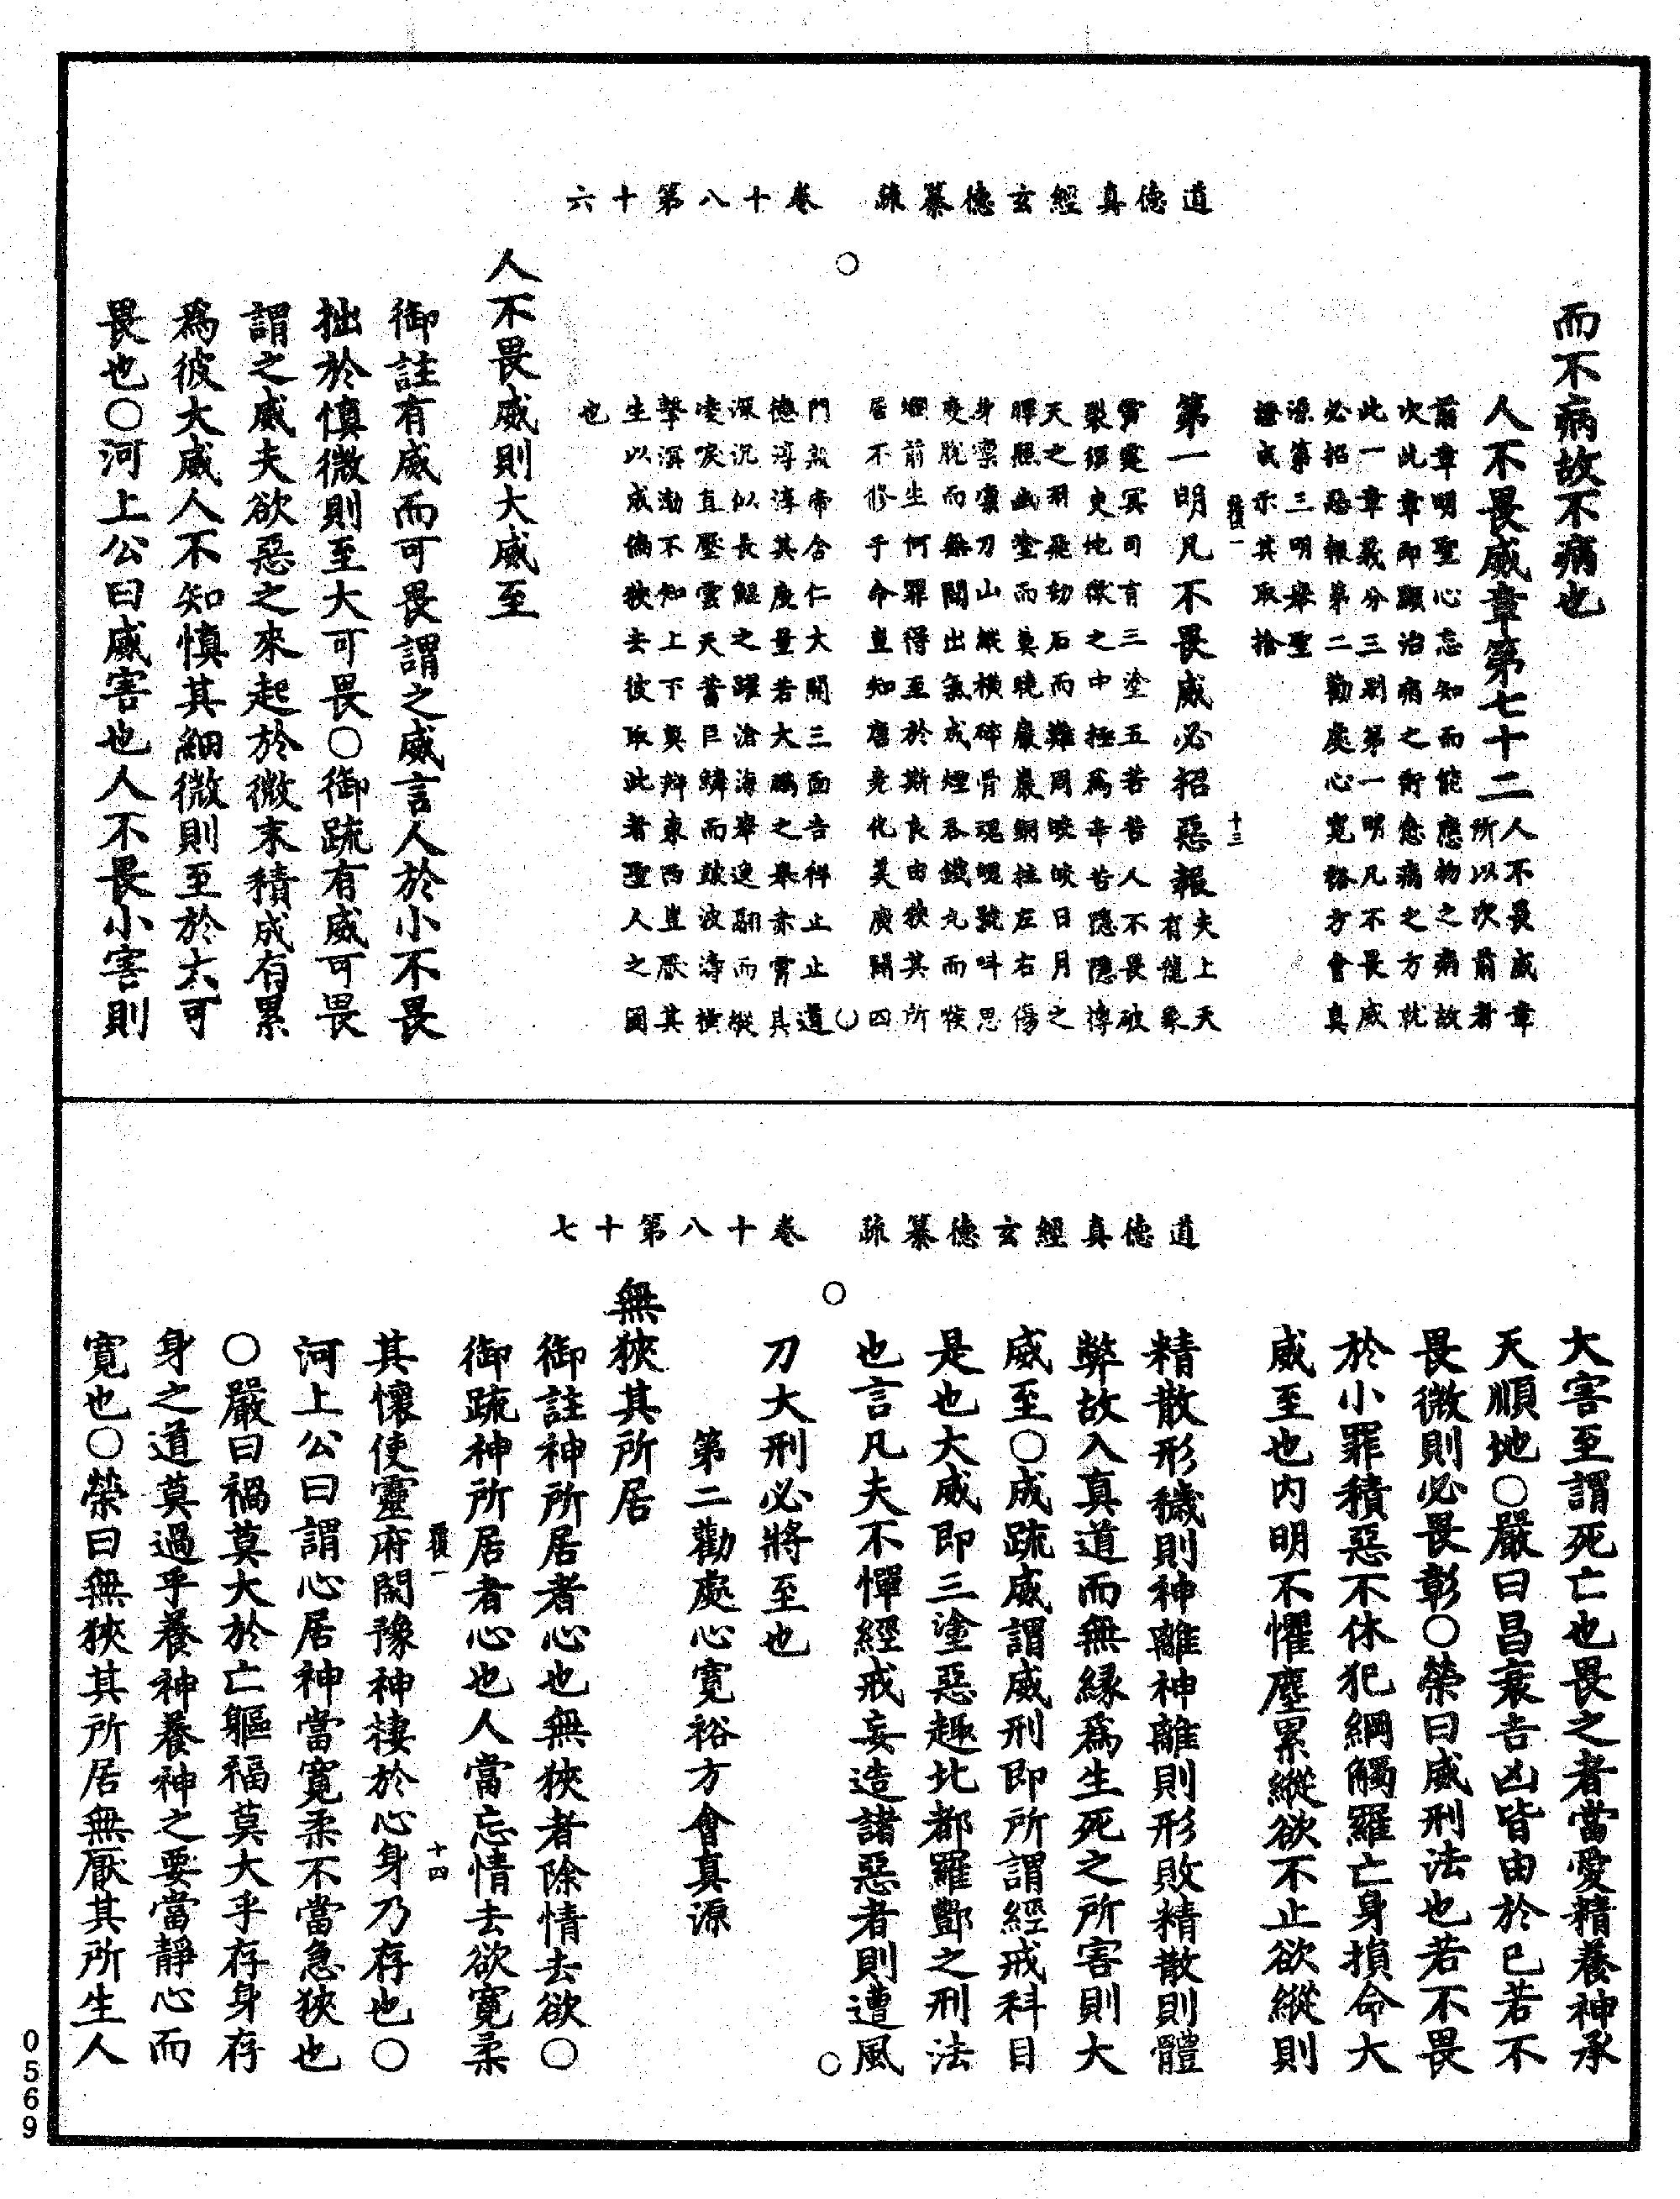 道德真經玄德纂疏　卷十八第十六
而不病故不病也
人不畏威章第七十二人不畏威章所以次前者
前章明聖心忘知而能應物之病故
次此章章即顯治病之術愈病之方就
此一章義分三別第一明凡不畏威
必招惡報第二勸處心寬裕方會真
源第三明舉聖
證成示其取捨
十三
第一明凡不畏威必招惡報夫上天有龍象
霄靈冥司有三塗五苦若人不畏破
裂吏地徵之中極為辛苦隱隱博
天之翔飛動石而難同皎皎日月之
暉照幽堂而莫曉巖巖銅柱左右傷
身凜凜刀山縱橫碎骨魂魄號呌思
脫而無聞出氣成煙吞鐵丸而
爛前生何罪得至於斯良由狹其所
居不修乎命豈知唐堯化美廣開四
門殷帝含仁大開三面告祥止止道
德淳淳其度量若大鵬之舉赤霄其
深沉似長鯤之躍滄海舉逸翮而縱
凌唳直壓雲天蓄巨鱗而鼓波濤橫
擊溟渤不知上下莫辯東西豈厭其
生以威狹去彼取此者聖人之圖
也
人不畏威則大威至
御註有威而可畏謂之威言人於小不畏
拙於慎微則至大可畏〇御䟽有威可畏
謂之威夫欲惡之來起於微末積成有累
為彼大威人不知慎其細微則至於大可
畏也〇河上公曰威害也人不畏小害則
道德真經玄德纂疏　卷十八第十七
大害至謂死亡也畏之者當愛精養神承
天順地〇嚴曰昌衰吉凶皆由於已若不
畏微則必畏彰〇榮曰威刑法也若不畏
於小罪積惡不休犯綱觸羅亡身損命大
威至也内明不懼塵累縱欲不止欲縱則
精散形穢則神離神離則形敗精散則體
弊故入真道而無緣為生死之所害則大
威至〇成䟽威謂威刑即所謂經戒科目
是也大威即三塗惡趣北都羅酆之刑法
也言凡夫不憚經戒妄造諸惡者則遭風
刀大刑必將至也
第二勸處心寬裕方會真源
無狹其所居
御註神所居者心也無狹者除情去欲〇
御䟽神所居者心也人當忘情去欲寬柔
十四
其懷使靈府閑豫神棲於心身乃存也〇
河上公曰謂心居神當寬柔不當急狹也
〇嚴曰禍莫大於亡軀福莫大乎存身存
身之道莫過乎養神養神之要當靜心而
寬也〇榮曰無狹其所居無厭其所生人
0569